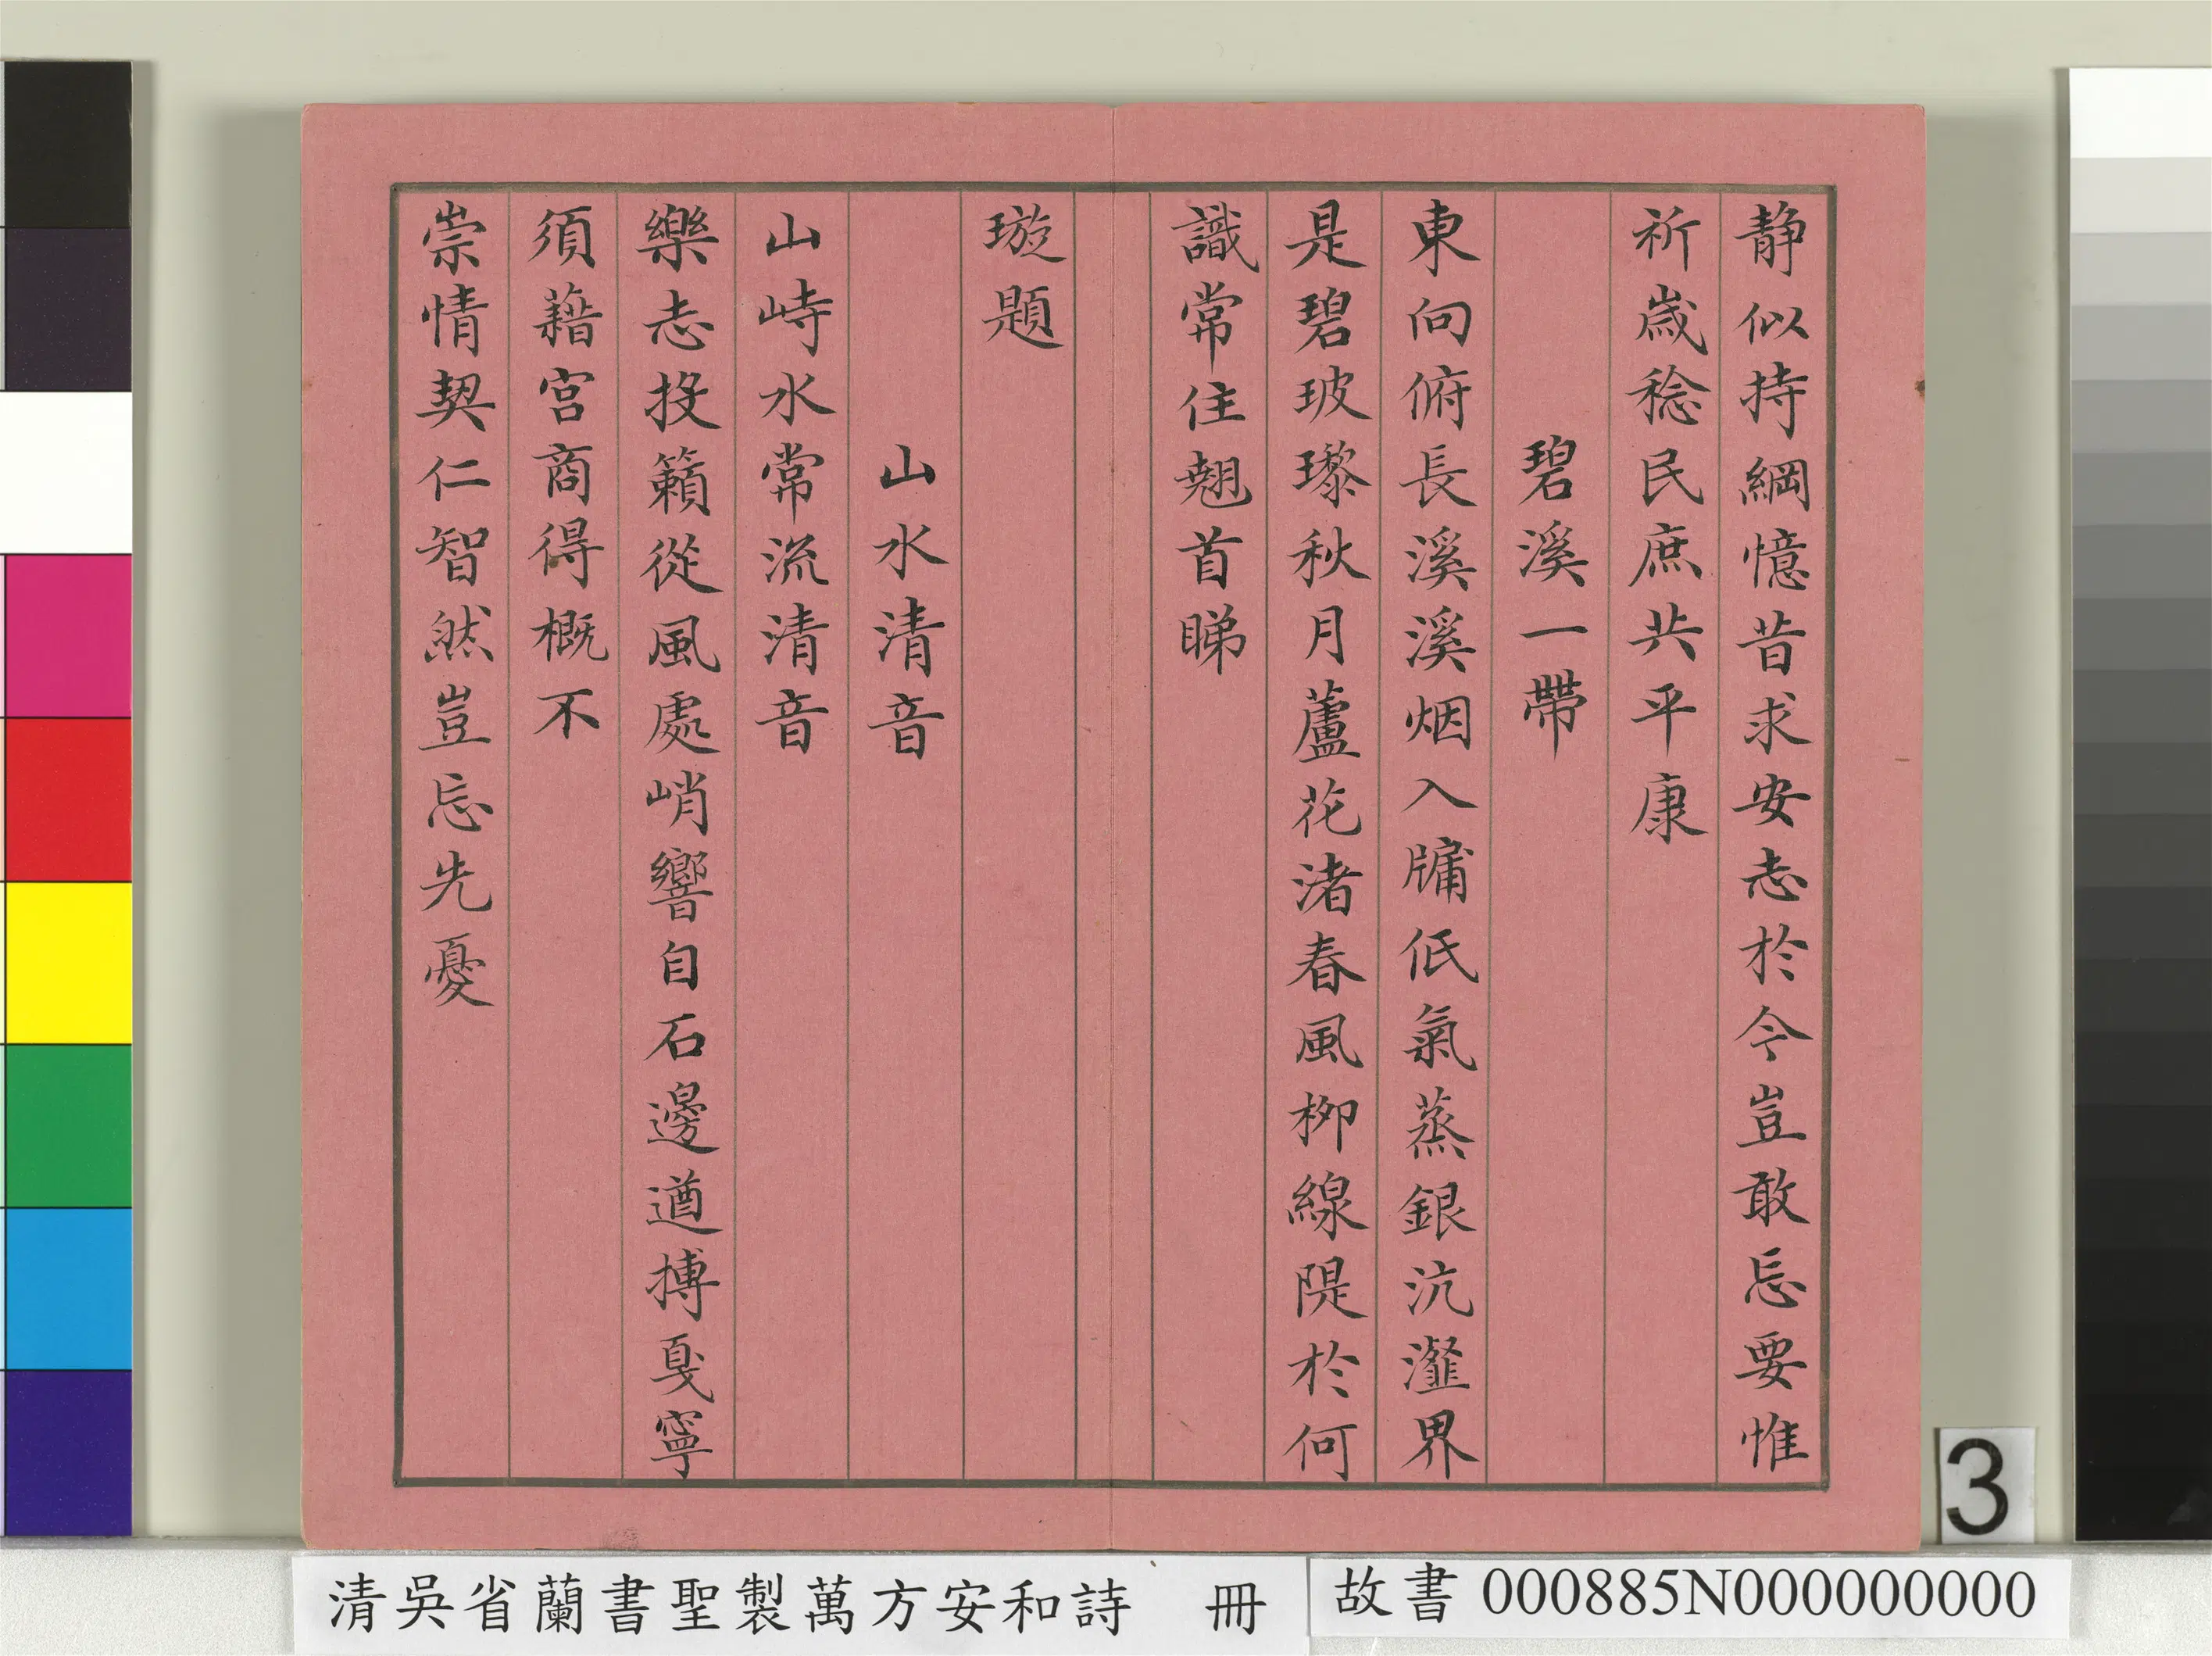 静似持綱憶昔求安志於今豈敢忘要惟
祈歲稔民庶共平康
碧溪一帶
東向俯長溪溪烟入牖低氣蒸銀沆瀣界
是碧玻瓈秋月蘆花渚春風柳線隄於何
識常住翹首睇
璇題
山水清音
山峙水常流清音
樂志投籟從風處峭響自石邊遒搏戛寧
須藉宮商得概不
崇情契仁智然豈忘先憂
清吳省蘭書聖製萬方安和詩 冊
故書 000885N000000000
3